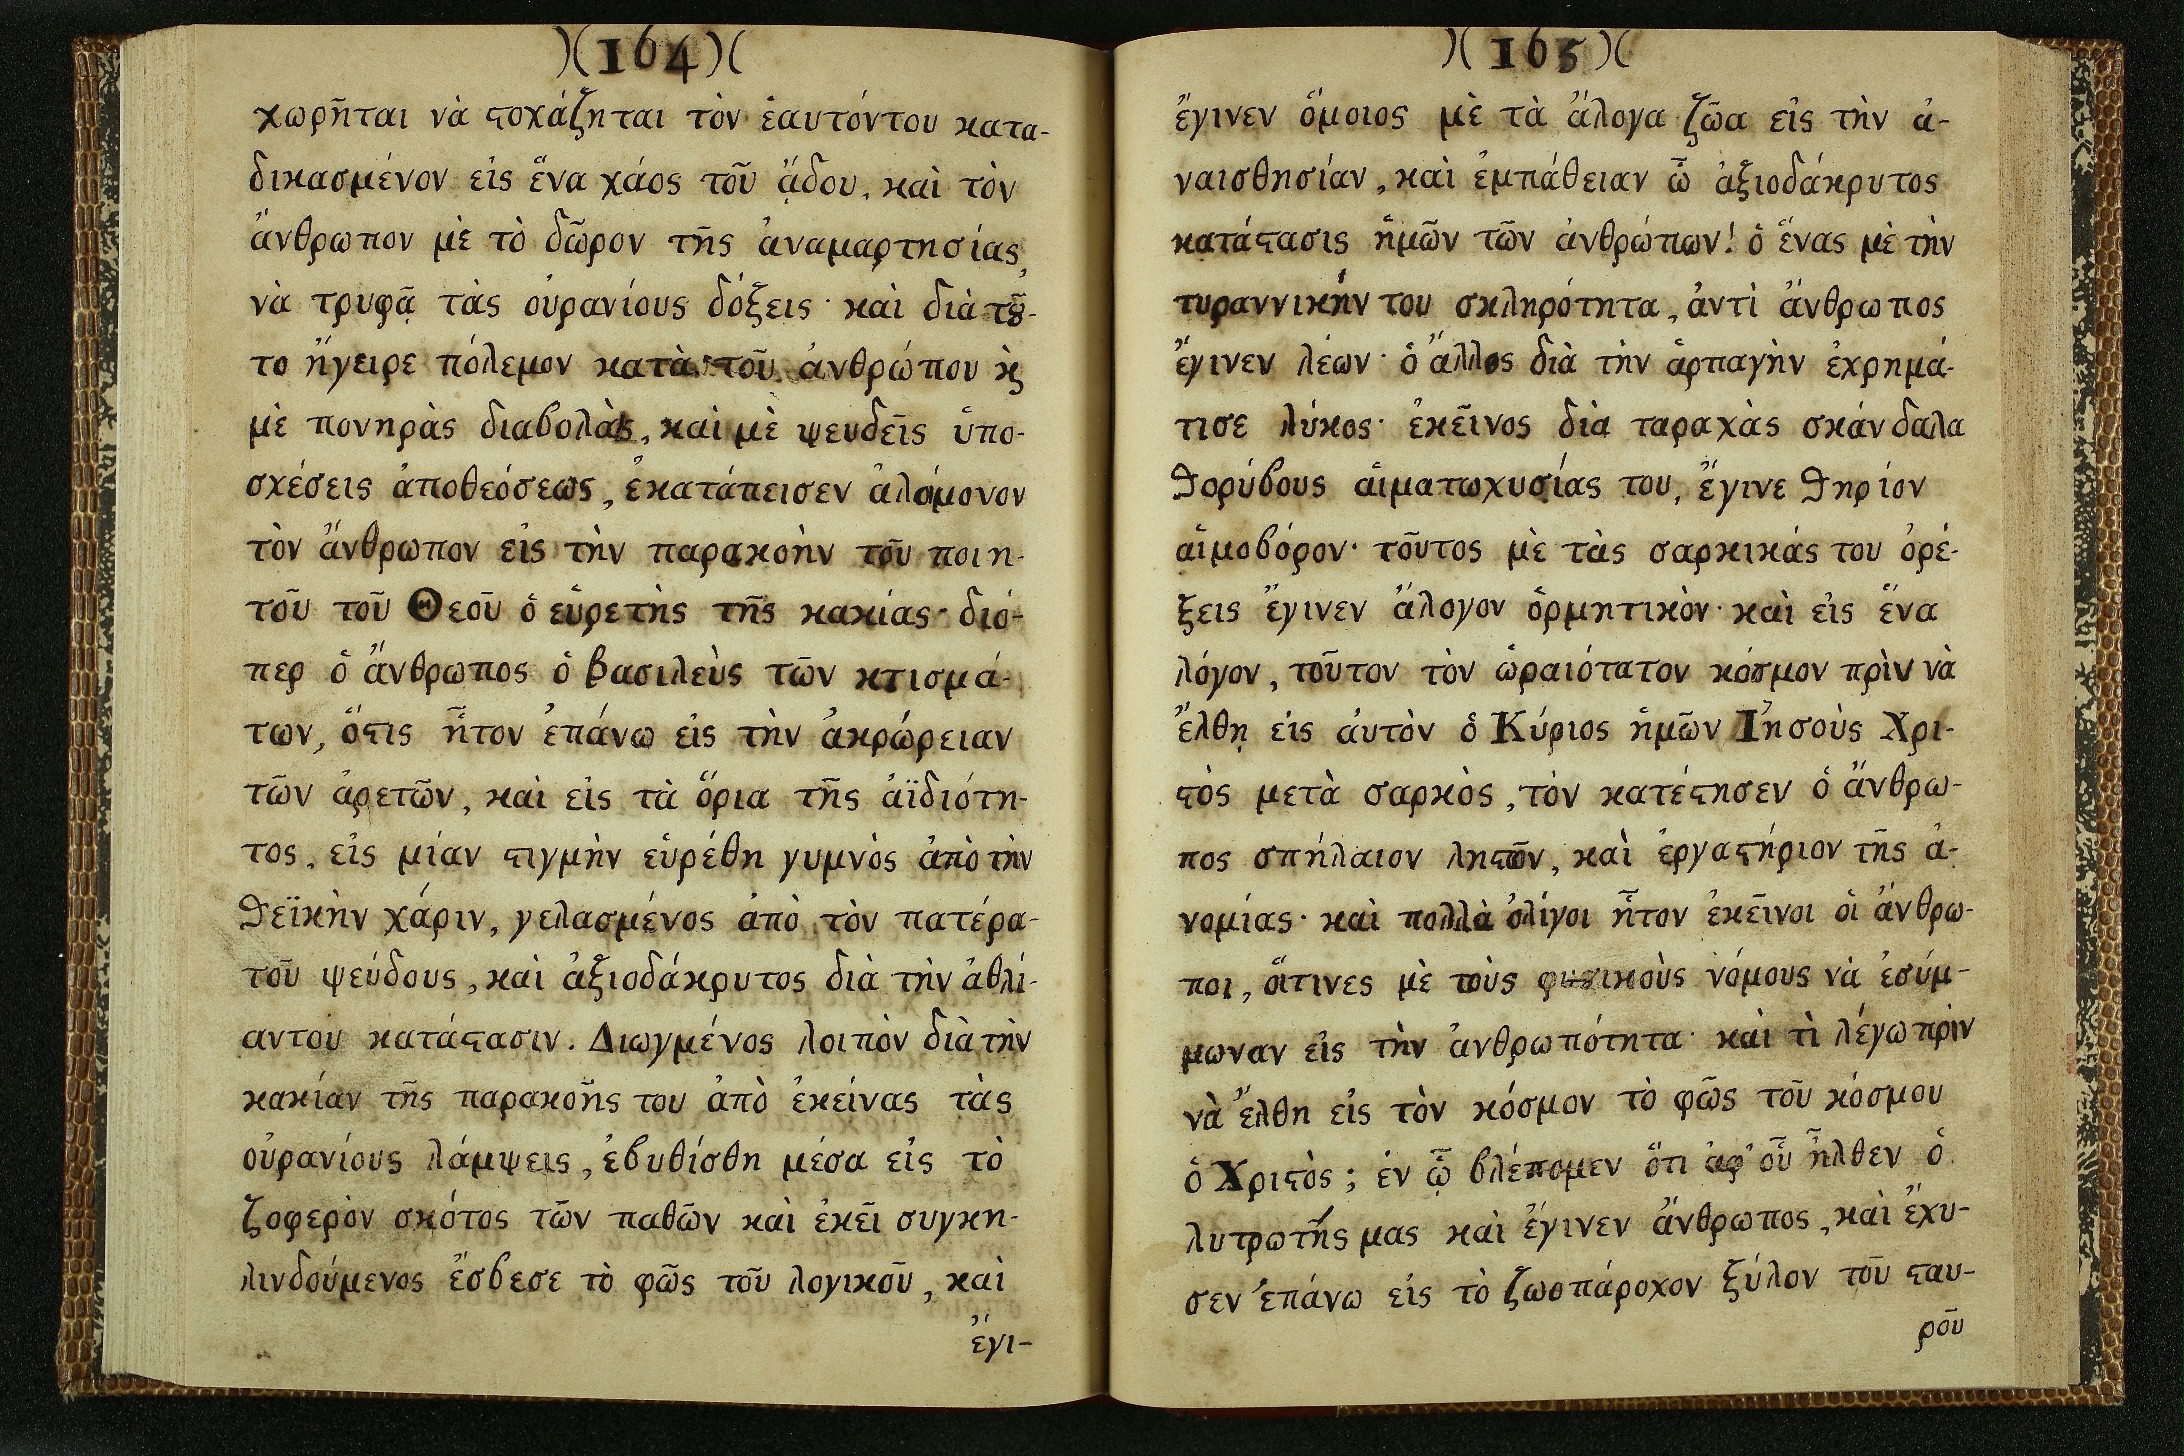 )(164)(
χωρῆται νὰ ϛοχάζηται τὸν ἑαυτόντου κατα-
δικασμένον εἰς ἕνα χάος τοῦ ᾅδου, καὶ τὸν
ἄνθρωπον μὲ τὸ δῶρον τῆς ἀναμαρτησίας,
νὰ τρυφᾷ τὰς οὐρανίους δόξεις· καὶ διὰ τȣ͂-
το ἤγειρε πόλεμον κατὰ τοῦ ἀνθρώπου ϗ
μὲ πονηρὰς διαβολὰς, καὶ μὲ ψευδεῖς ὑπο-
σχέσεις ἀποθεόσεως, ἐκατάπεισεν ἀλόμονον
τὸν ἄνθρωπον εἰς τὴν παρακοὴν τοῦ ποιη-
τοῦ τοῦ Θεοῦ ὁ εὑρετὴς τῆς κακίας· διό-
περ ὁ ἄνθρωπος ὁ βασιλεὺς τῶν κτισμά-
των, ὅϛις ἦτον ἐπάνω εἰς τὴν ἀκρώρειαν
τῶν ἀρετῶν, καὶ εἰς τὰ ὅρια τῆς ἀϊδιότη-
τος, εἰς μίαν ϛιγμὴν εὑρέθη γυμνὸς ἀπὸ τὴν
ϑεϊκὴν χάριν, γελασμένος ἀπὸ τὸν πατέρα-
τοῦ ψεύδους, καὶ ἀξιοδάκρυτος διὰ τὴν ἀθλί-
αντου κατάϛασιν. Διωγμένος λοιπὸν διὰ τὴν
κακίαν τῆς παρακοῆς του ἀπὸ ἐκείνας τὰς
οὐρανίους λάμψεις, ἐβυθίσθη μέσα εἰς τὸ
ζοφερὸν σκότος τῶν παθῶν καὶ ἐκεῖ συγκη-
λινδούμενος ἔσβεσε τὸ φῶς τοῦ λογικοῦ, καὶ
ἔγι-
)(165)(
ἔγινεν ὅμοιος μὲ τὰ ἄλογα ζῶα εἰς τὴν ἀ-
ναισθησίαν, καὶ ἐμπάθειαν ὦ ἀξιοδάκρυτος
κατάϛασις ἡμῶν τῶν ἀνθρώπων! ὁ ἕνας μὲ τὴν
τυραννικήν του σκληρότητα, ἀντὶ ἄνθρωπος
ἔγινεν λέων· ὁ ἄλλος διὰ τὴν ἁρπαγὴν ἐχρημά-
τισε λύκος· ἐκεῖνος δία ταραχὰς σκάνδαλα
ϑορύβους αἱματωχυσίας του, ἔγινε ϑηρίον
αἱμοβόρον· τοῦτος μὲ τὰς σαρκικάς του ὀρέ-
ξεις ἔγινεν ἄλογον ὁρμητικὸν· καὶ εἰς ἕνα
λόγον, τοῦτον τὸν ὡραιότατον κόσμον πρὶν νὰ
ἔλθῃ εἰς ἀυτὸν ὁ Κύριος ἡμῶν Ἰησοὺς Χρι-
ϛὸς μετὰ σαρκὸς, τὸν κατέϛησεν ὁ ἄνθρω-
πος σπήλαιον ληϛῶν, καὶ ἐργαϛήριον τῆς ἀ-
νομίας· καὶ πολλὰ ὀλίγοι ἦτον ἐκεῖνοι οἱ ἄνθρω-
ποι, οἵτινες μὲ τοὺς φυσικοὺς νόμους νὰ ἐσύμ-
μωναν εἰς τὴν ἀνθρωπότητα· καὶ τὶ λέγω πρὶν
νὰ ἔλθη εἰς τὸν κόσμον τὸ φῶς τοῦ κόσμου
ὁ Χριϛὸς; ἐν ᾧ βλέπομεν ὅτι ἀφ' οὗ ἦλθεν ὁ
λυτρωτής μας καὶ ἔγινεν ἄνθρωπος, καὶ ἔχυ-
σεν ἐπάνω εἰς τὸ ζωοπάροχον ξύλον τοῦ ϛαυ-
ροῦ